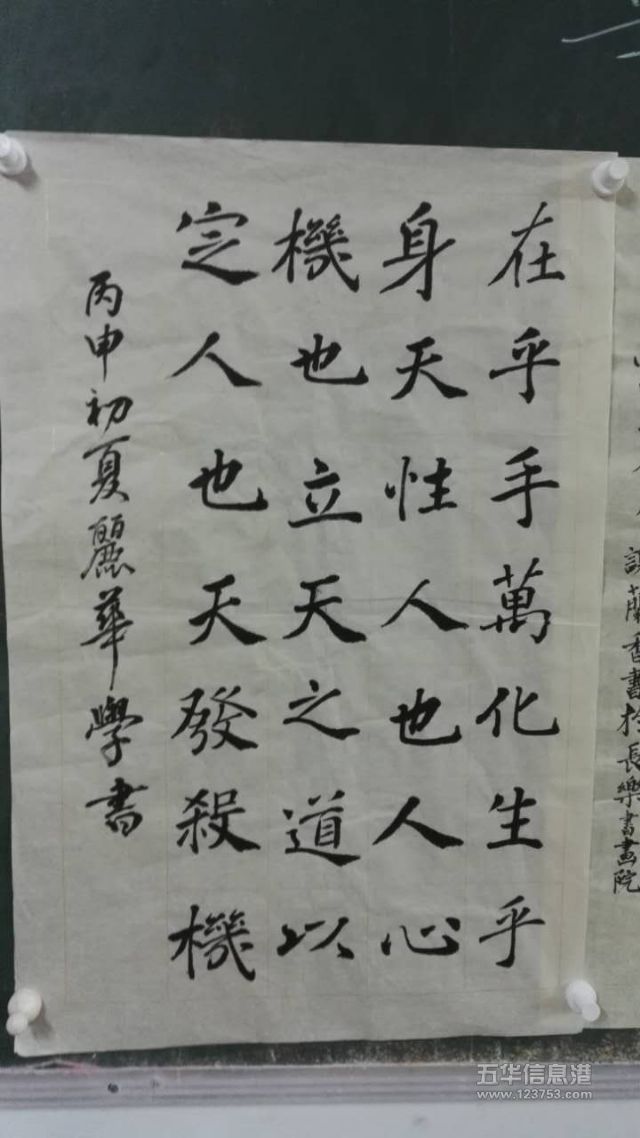 在乎手萬化生乎
身天性人也人心
機也立天之道以
定人也天發殺機
丙申初夏麗華學書
蘭香書於長樂書畫院
五华信息港
www.123753.com